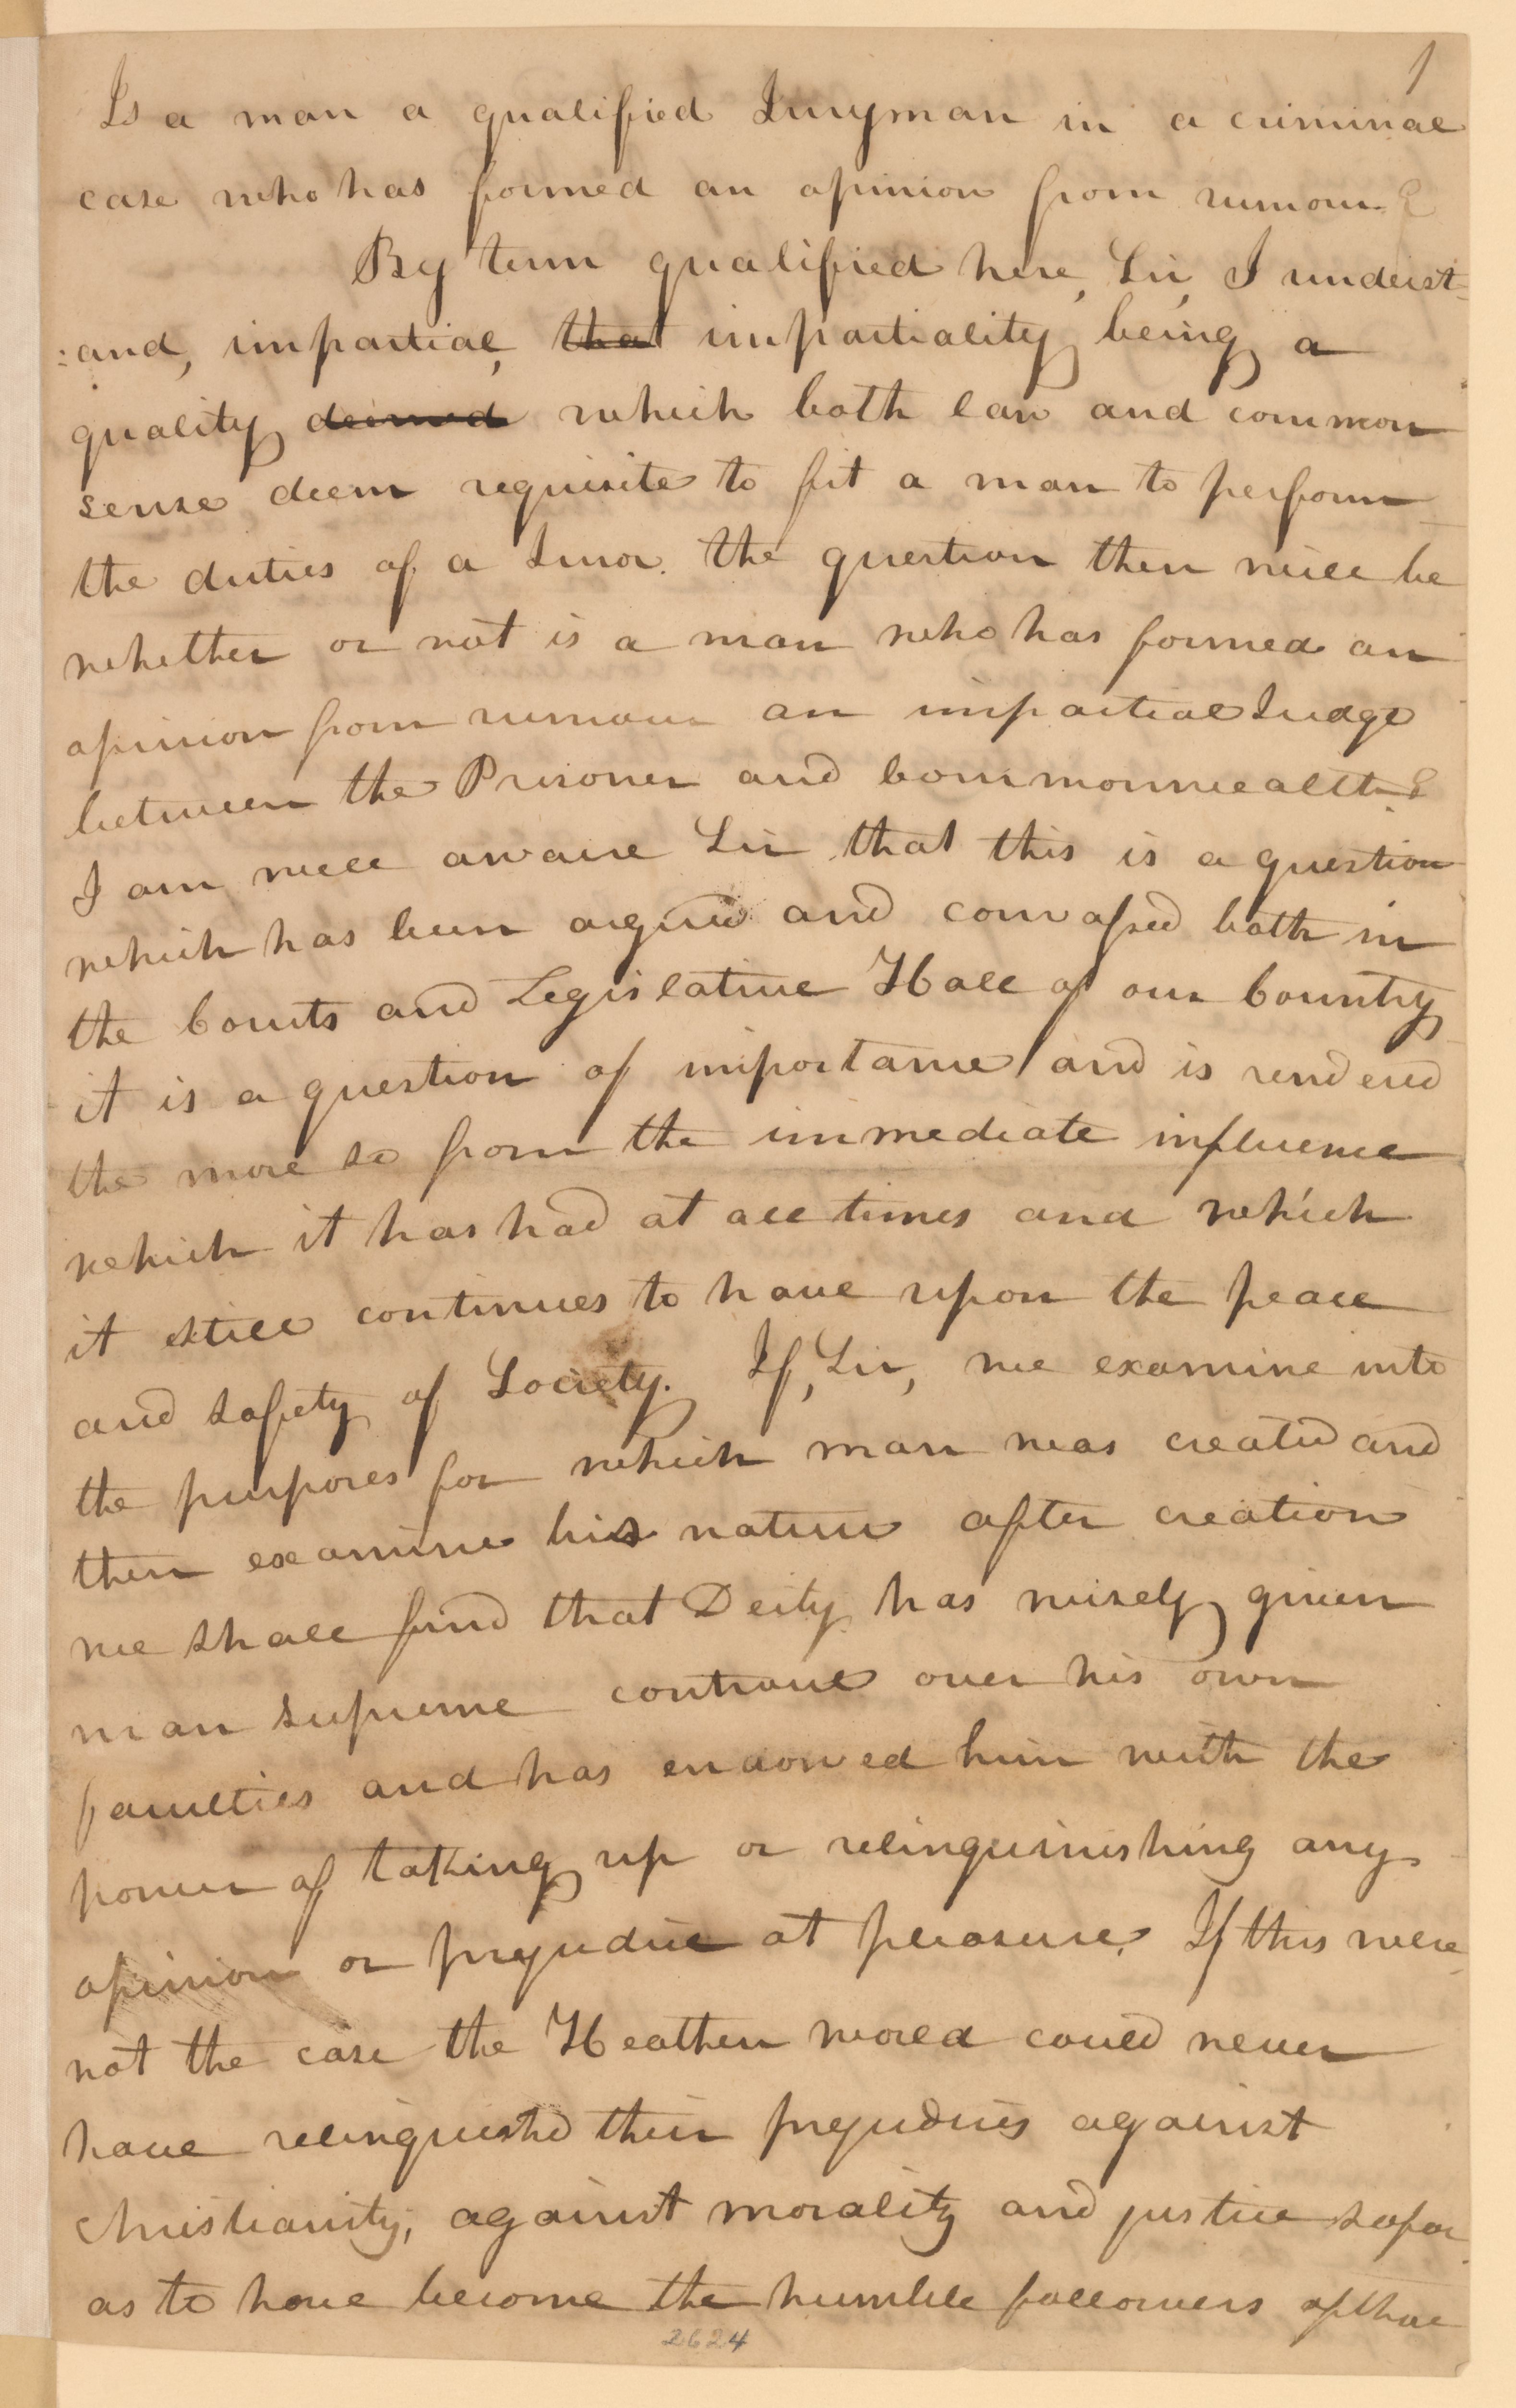 1
Is a man a qualified Juryman in a criminal
case who has formed an opinion from rumour?
By term qualified here, Sir, I underst-
:and, impartial, that impartiality being a
quality deemed which both law and common
sense deem requisite to fit a man to perform
the duties of a Juror. The question then will be
whether or not is a man who has formed an
opinion from rumour an impartial Judge
between the Prisoner and Commonwealth?
I am well aware Sir that this is a question
which has been argued and convassed both in
the Courts and Legislative Hall of our Country
it is a question of importance and is rendered
the more so from the immediate influence
which it has had at all times and which
it still continues to have upon the peace
and safety of Society. If, Sir, we examine into
the purposes for which man was created and
then examine his nature after creation
we shall find that Deity has wisely given
man supreme controul over his own
faculties and has endowed him with the
power of taking up or relinquinishing any
opinion or prejudice at pleasure. If this were
not the case the Heathen world could never
have relinquished their prejudices against
christianity, against morality and justice so far
as to have become the humble followers of that
2624